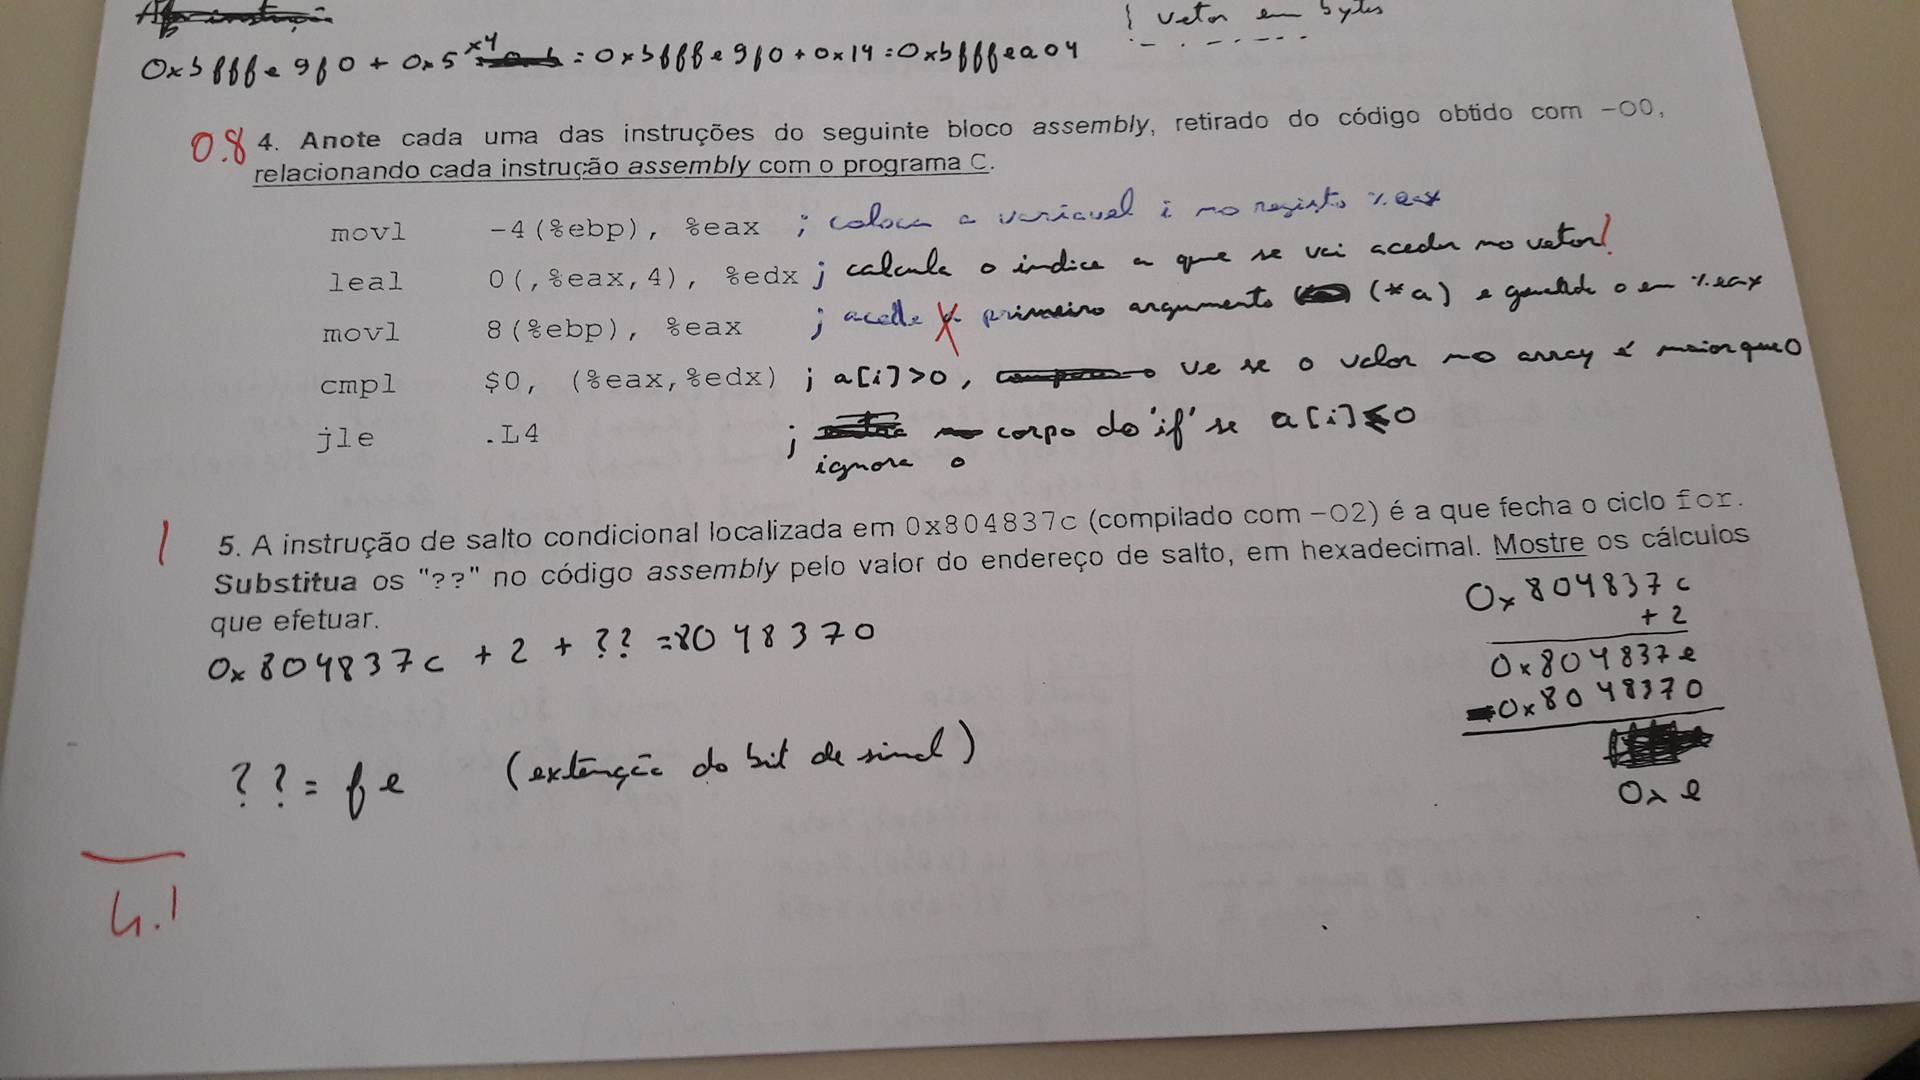 vetor em bytes
0xbfffe9f0 + 0x5 x4 = 0xbfffe9f0 + 0x14 = 0xbfffea04
0.8 4. Anote cada uma das instruções do seguinte bloco assembly, retirado do código obtido com -O0,
relacionando cada instrução assembly com o programa C.
movl -4(%ebp), %eax ; coloca a variavel i no registo %eax
leal 0(,%eax,4), %edx ; calcula o indice a que se vai aceder no vetor!
movl 8(%ebp), %eax ; acede primeiro argumento (*a) e guarda o em %eax
cmpl $0, (%eax,%edx) ; a[i]>0, ve se o valor no array é maior que 0
jle .L4 ; corpo do 'if' se a[i]≤0
ignora o
1 5. A instrução de salto condicional localizada em 0x804837c (compilado com -O2) é a que fecha o ciclo for.
Substitua os "??" no código assembly pelo valor do endereço de salto, em hexadecimal. Mostre os cálculos
que efetuar.
0x804837c + 2 + ?? = 8048370
0x804837c
+ 2
0x804837e
-0x8048370
0xe
??= fe (extenção do bit de sinal)
4.1